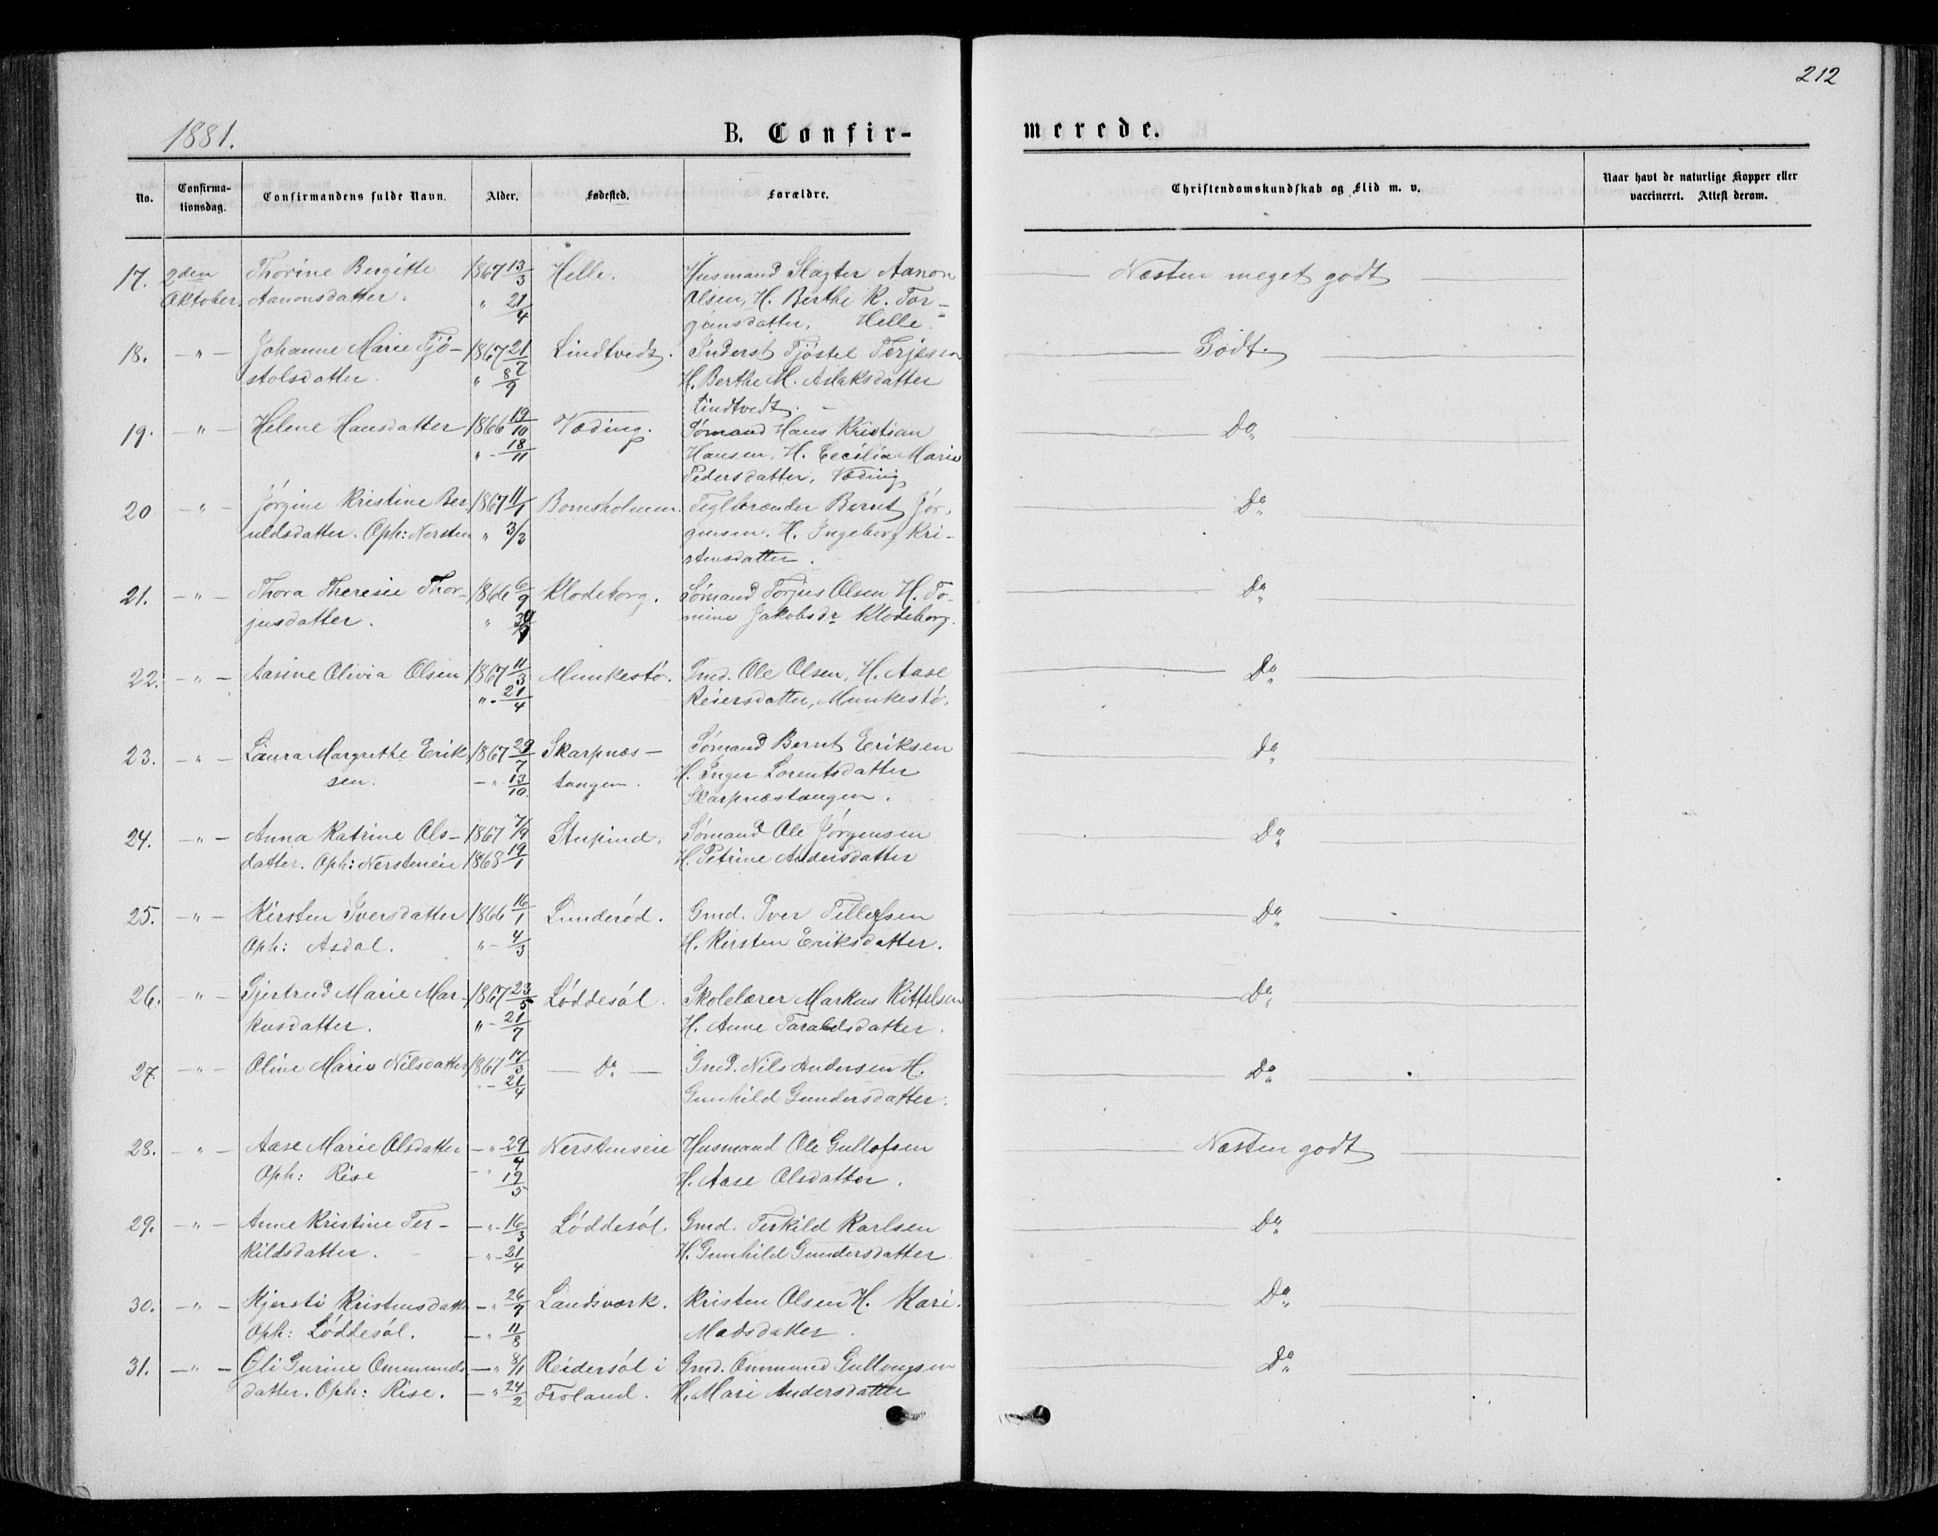 212
1881.
B. Confir- merede.
No. Confirma-tionsdag. Confirmandens fulde Navn. Alder. Fødested. Forældre. Christendomskundskab og Flid m. v. Naar havt de naturlige Kopper eller vaccineret. Attest derom.
17. 2den Thorine Bergitte 1867 13/3 Helle. Husmand Slagter Aanon Næsten meget godt
Oktober. Aanonsdatter. " 21/4 Olsen, H. Berthe K. Tor-
gimsdatter, Helle.
18. - " - Johanne Marie Tjø- 1867 21/7 Lindtvedt. Inderst Tjøstel Terjesen Godt.
stolsdatter. " 8/9 H. Berthe M. Aslaksdatter
Lindtvedt. -
19. - " - Helene Hansdatter 1866 19/10 Væding. Sømand Hans Kristian Do
" - 18/11 Hansen, H. Cecilia Marie
Pedersdatter, Væding
20 - " - Jørgine Kristine Ber- 1867 11/1 Bomsholmen. Teglbrænder Bernt Jør- Do
uldsdatter. Oph: Nersten " 3/3 gensen, H. Ingeborg Kri-
stensdatter.
21. - " - Thora Theresie Thor- 1866 6/9 Klodeborg. Sømand Torjus Olsen H. To- Do
jusdatter. " mine Jakobsdr Klodeborg.
22. - " - Aasine Olivia Olsen 1867 11/3 Munkestø. Gmd. Ole Olsen, H. Aase Do
" - 21/4 Reiersdatter, Munkestø.
23. - " - Laura Margrethe Erik- 1867 29/7 Skarpnæs- Sømand Bernt Eriksen Do
sen. - " 13/10. tangen. H. Inger Lorentsdatter
Skarpnæstangen.
24. - " - Anna Katrine Ols- 1867 7/9 Stupind. Sømand Ole Jørgensen Do
datter. Oph: Nersteneie 1868 19/1 H. Petrine Andersdatter
25. - " - Kirsten Iversdatter 1866 16/1 Lunderød. Gmd. Iver Tellefsen Do
Oph: Asdal. " - 4/3 H. Kirsten Eriksdatter.
26. - " - Gjertrud Marie Mar- 1867 23/5 Løddesøl. Skolelærer Markus Kittelsen Do
kusdatter. " - 21/7 H. Anne Taraldsdatter.
27. - " - Oline Marie Nilsdatter 1867 17/3 - Do - Gmd. Nils Andersen H. Do
" - 21/4 Gunhild Gundersdatter.
28. - " - Aase Marie Olsdatter - " 29/4 Nerstenseie Husmand Ole Gullofsen Næsten godt
Oph: Rise - " 19/5 H. Aase Olsdatter.
29. - " - Anne Kristine Ter- - " - 16/3 Løddesøl. Gmd. Terkild Karlsen Do
kildsdatter. - " - 21/4 H. Gunhild Gundersdatter
30. - " - Kjersti Kristensdatter - " 26/7 Landsværk. Kristen Olsen H. Kari Do
Oph: Løddesøl. - " 11/8 Madsdatter.
31. - " - Oli Gurine Ommunds- - " 8/1 Reidersøl i Gmd. Ommund Gullongsen Do
datter. Oph: Rise. - " 24/2 Froland. H. Mari Andersdatter